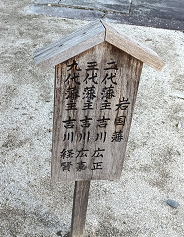 岩国藩
二代藩主 吉川 広正
三代藩主 吉川 広嘉
九代藩主 吉川 経賢